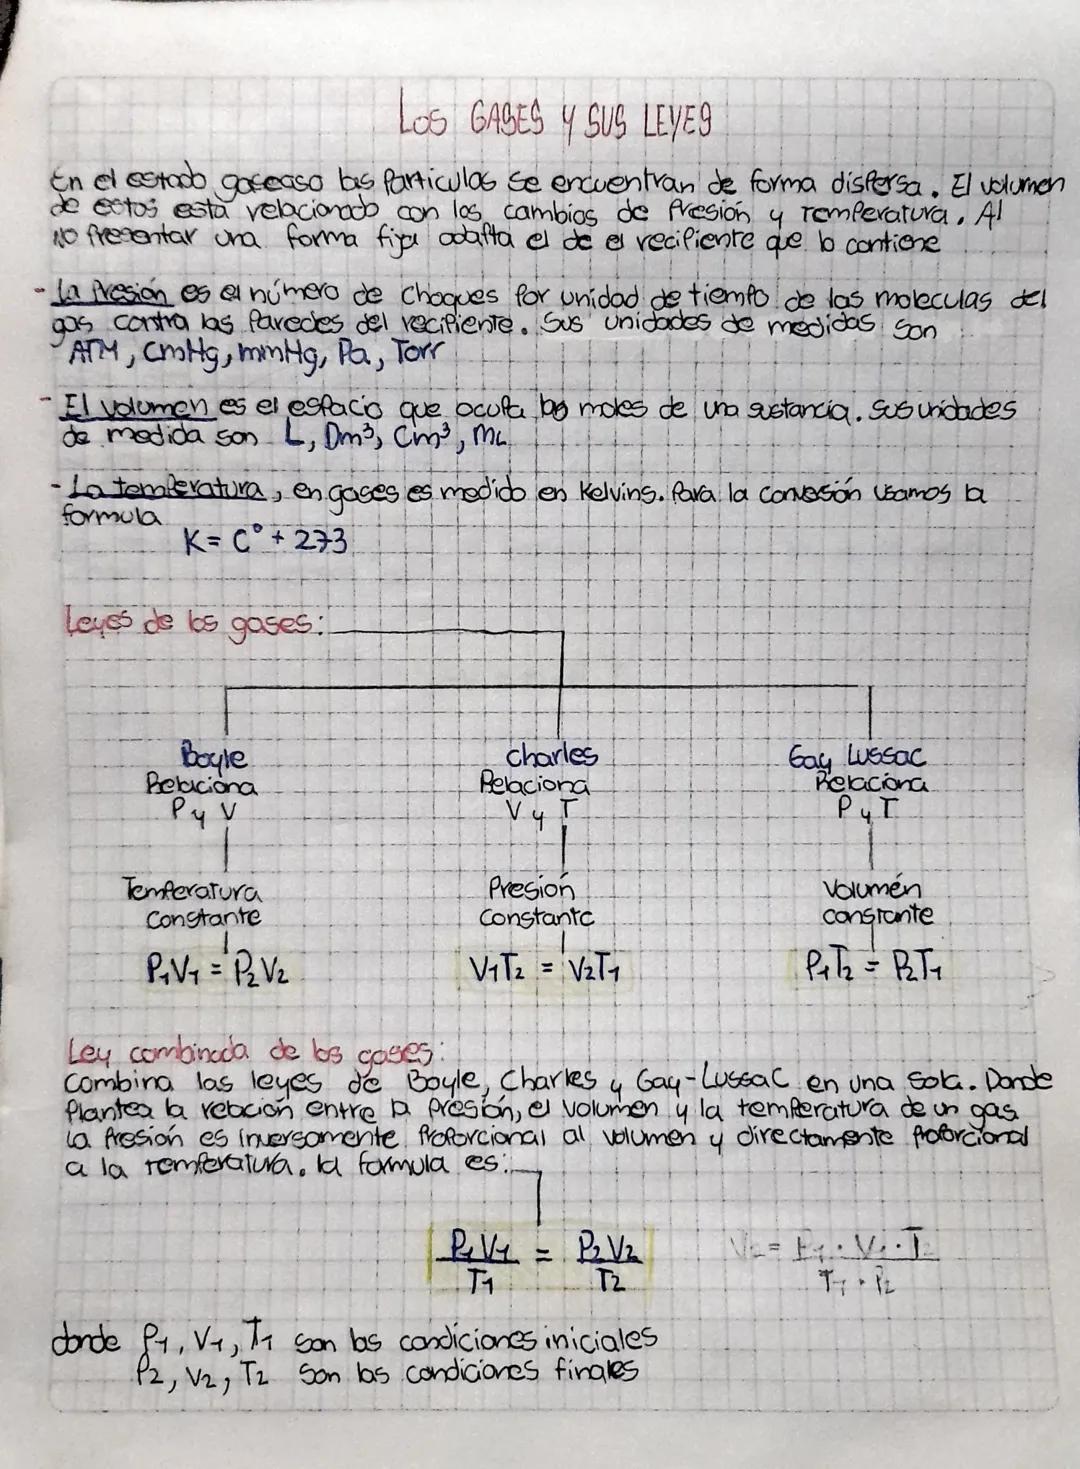 LOS GASES Y SUS LEYES
En el estado gaseaso las Particulas se encuentran de forma dispersa. El volumen
de estos está relacionado con los cambios de Presión y Temperatura. Al
no Presentar una forma fija adapta el de el recipiente que lo contiene
- La Presion es el número de choques Por unidad de tiempo de las moleculas del
gas contra las Paredes del recipiente. Sus unidades de medidas son
ATM, CmHg, mmHg, Pa, Torr
- El volumen es el espacio que ocupa las moles de una sustancia. Sus unidades
de medida son L, Dm³, Cm³, ML
- La temperatura, en gases es medido en Kelvins. Para la conversión usamos la
formula
K= C° + 273
Leyes de los gases:
Boyle Charles Gay Lussac
Relaciona Relaciona Relaciona
P y V V y T P y T
Temperatura Presión Volumén
constante constante constante
P₁V₁ = P₂V₂ V₁T₂ = V₂T₁ P₁T₂ = P₂T₁
Ley combinada de los gases:
Combina las leyes de Boyle, Charles y Gay-Lussac en una sola. Donde
Plantea la relación entre la presión, el volumen y la temperatura de un gas
La Presión es inversamente Proporcional al volumen y directamente proporcional
a la temperatura. la formula es:
P₁V₁ = P₂V₂ V₂= P₁ · V₁ · T₂
T₁ T₂ T₁ · P₂
donde P₁, V₁, T₁ son las condiciones iniciales
P₂, V₂, T₂ son las condiciones finales